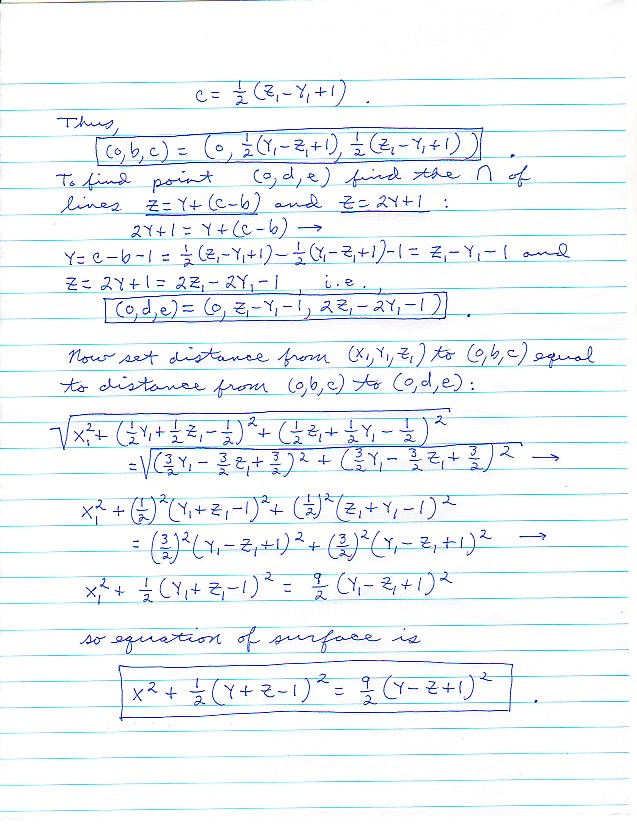 c = ½(z₁ - y₁ + 1) .
Thus,
(0, b, c) = (0, ½(y₁ - z₁ + 1), ½(z₁ - y₁ + 1)) .
To find point (0, d, e) find the ∩ of
lines z = y + (c-b) and z = 2y + 1 :
2y + 1 = y + (c-b) →
y = c - b - 1 = ½(z₁ - y₁ + 1) - ½(y₁ - z₁ + 1) - 1 = z₁ - y₁ - 1 and
z = 2y + 1 = 2z₁ - 2y₁ - 1 , i.e. ,
(0, d, e) = (0, z₁ - y₁ - 1, 2z₁ - 2y₁ - 1) .
Now set distance from (x₁, y₁, z₁) to (0, b, c) equal
to distance from (0, b, c) to (0, d, e) :
√(x₁² + (½y₁ + ½z₁ - ½)² + (½z₁ + ½y₁ - ½)²)
= √((3/2 y₁ - 3/2 z₁ + 3/2)² + (3/2 y₁ - 3/2 z₁ + 3/2)²) →
x₁² + (½)²(y₁ + z₁ - 1)² + (½)²(z₁ + y₁ - 1)²
= (3/2)²(y₁ - z₁ + 1)² + (3/2)²(y₁ - z₁ + 1)² →
x₁² + ½(y₁ + z₁ - 1)² = 9/2 (y₁ - z₁ + 1)²
so equation of surface is
x² + ½(y + z - 1)² = 9/2 (y - z + 1)² .